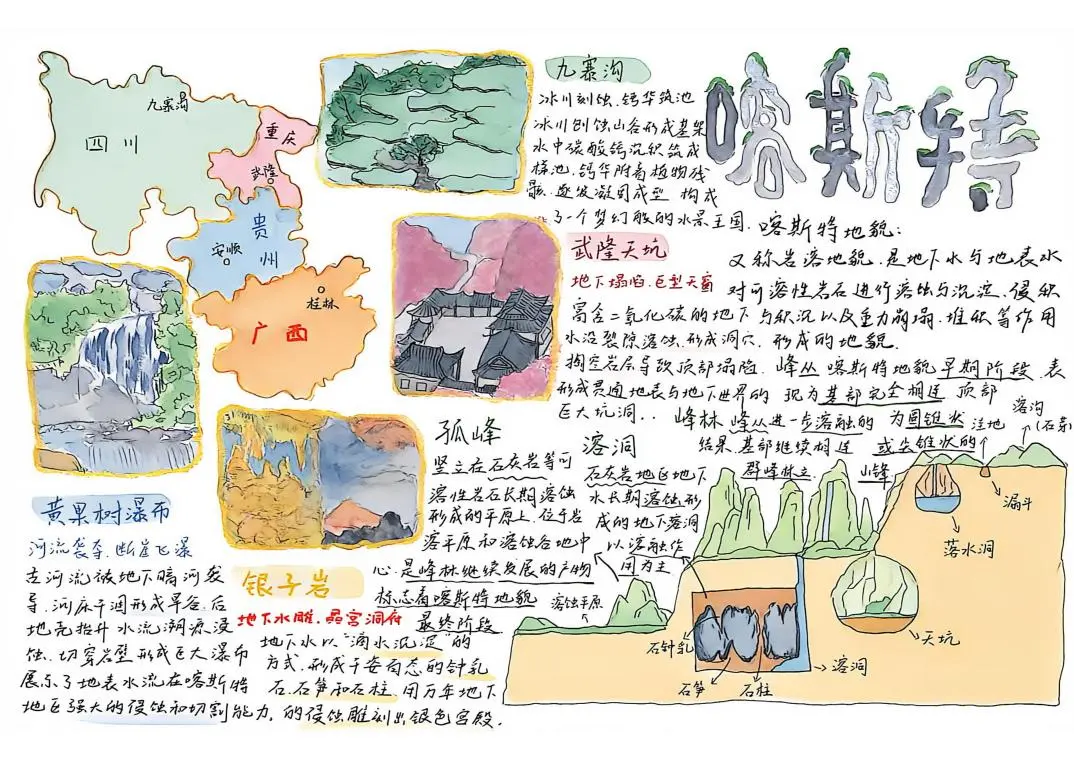 喀斯特
九寨沟
四川
重庆
武隆
贵州
安顺
桂林
广西
九寨沟
冰川刻蚀.钙华筑池
冰川刨蚀山谷形成基架
水中碳酸钙沉积筑成
梯池.钙华附着植物残
骸.逐发凝固成型 构成
了一个梦幻般的水景王国.
武隆天坑
地下塌陷.巨型天窗
富含二氧化碳的地下
水沿裂隙溶蚀.形成洞穴.
掏空岩层导致顶部塌陷.
形成贯通地表与地下世界的
巨大坑洞..
喀斯特地貌:
又称岩落地貌.是地下水与地表水
对可溶性岩石进行溶蚀与沉淀.侵积
与积沉以及重力崩塌.堆积等作用
形成的地貌.
峰丛 喀斯特地貌早期阶段.表
现为基部完全相连 顶部
为圆锥状
或尖锥状的
山锋
峰林 峰丛进一步溶融的
结果.基部继续相连
群峰林立
孤峰
坚立在石灰岩等可
溶性岩石长期溶蚀
形成的平原上.位于岩
溶平原和溶蚀谷地中
心.是峰林继续发展的产物
标志着喀斯特地貌
最终阶段
溶洞
石灰岩地区地下
水长期溶蚀形
成的地下溶洞
以溶融作
用为主
黄果树瀑布
河流袭夺.断崖飞瀑
古河流被地下暗河袭
导.河床干涸形成旱谷.后
地壳抬升 水流溯源侵
蚀.切穿岩壁形成巨大瀑布
展示了地表水流在喀斯特
地区强大的侵蚀和切割能力.
银子岩
地下水雕.晶宫洞府
地下水以“滴水沉淀”的
方式.形成千姿百态的钟乳
石.石笋和石柱.用万年地下
的侵蚀雕刻出银色宫殿.
溶沟
(石芽)
洼地
漏斗
落水洞
天坑
溶洞
溶蚀平原
石钟乳
石笋
石柱